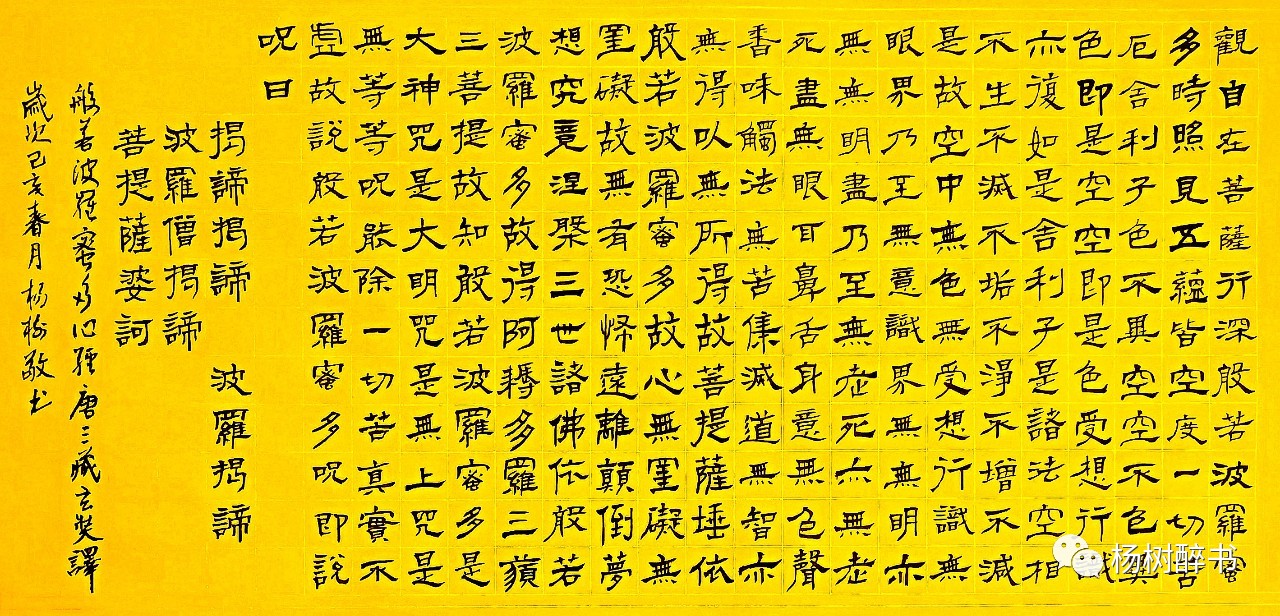 觀自在菩薩行深般若波羅蜜
多時照見五蘊皆空度一切苦
厄舍利子色不異空空不色異
色即是空空即是色受想行識
亦復如是舍利子是諸法空相
不生不滅不垢不淨不增不減
是故空中無色無受想行識無
眼界乃至無意識界無無明亦
無無明盡乃至無老死亦無老
死盡無眼耳鼻舌身意無色聲
香味觸法無苦集滅道無智亦
無得以無所得故菩提薩埵依
般若波羅蜜多故心無罣礙無
罣礙故無有恐怖遠離顛倒夢
想究竟涅槃三世諸佛依般若
波羅蜜多故得阿耨多羅三藐
三菩提故知般若波羅蜜多是
大神咒是大明咒是無上咒是
無等等呪能除一切苦真實不
虛故說般若波羅蜜多呪即說
呪曰
揭諦揭諦 波羅揭諦
波羅僧揭諦
菩提薩婆訶
般若波羅蜜多心經唐三藏玄奘譯
歲次己亥春月楊樹敬书
杨树醉书